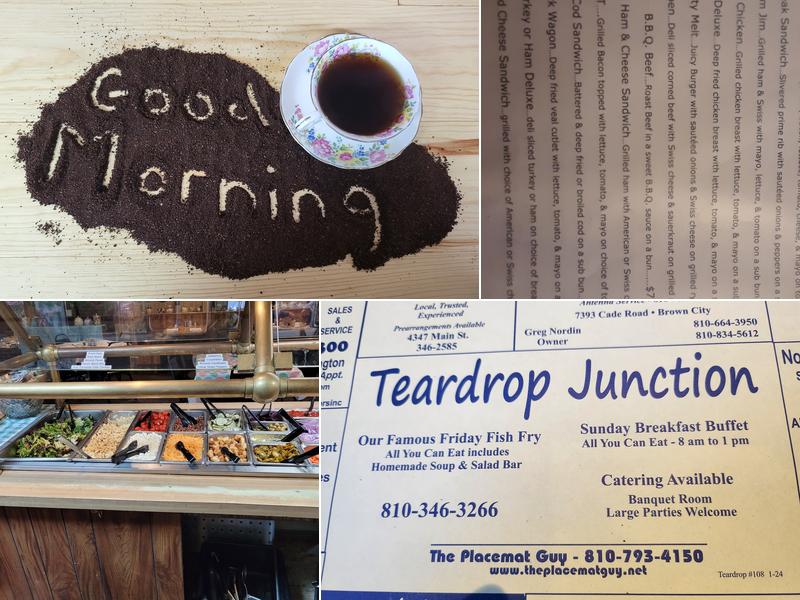 Good
Morning
oak Sandwich...Slivered prime rib with sautéed onions & peppers on a
m Jim..Grilled ham & Swiss with mayo, lettuce, & tomato on a sub bun
Chicken..Grilled chicken breast with lettuce, tomato, & mayo on a
Deluxe..Deep fried chicken breast with lettuce, tomato, & mayo on a
ty Melt..Juicy Burger with sautéed onions & Swiss cheese on grilled
en...Deli sliced corned beef with Swiss cheese & sauerkraut on grilled
B.B.Q. Beef...Roast Beef in a sweet B.B.Q. sauce on a bun.....$7
Ham & Cheese Sandwich..Grilled ham with American or Swiss
T...Grilled Bacon topped with lettuce, tomato, & mayo on choice of
Cod Sandwich..Battered & deep fried or broiled cod on a sub bun
rk Wagon...Deep fried veal cutlet with lettuce, tomato, & mayo on a
rkey or Ham Deluxe..deli sliced turkey or ham on choice of
d Cheese Sandwich...grilled with choice of American or Swiss
SALES
&
SERVICE
Appt.
Local, Trusted,
Experienced
Prearrangements Available
4347 Main St.
346-2585
7393 Cade Road • Brown City
Greg Nordin
Owner
810-664-3950
810-834-5612
Teardrop Junction
Our Famous Friday Fish Fry
All You Can Eat includes
Homemade Soup & Salad Bar
810-346-3266
Sunday Breakfast Buffet
All You Can Eat - 8 am to 1 pm
Catering Available
Banquet Room
Large Parties Welcome
The Placemat Guy - 810-793-4150
www.theplacematguy.net
Teardrop #108 1-24